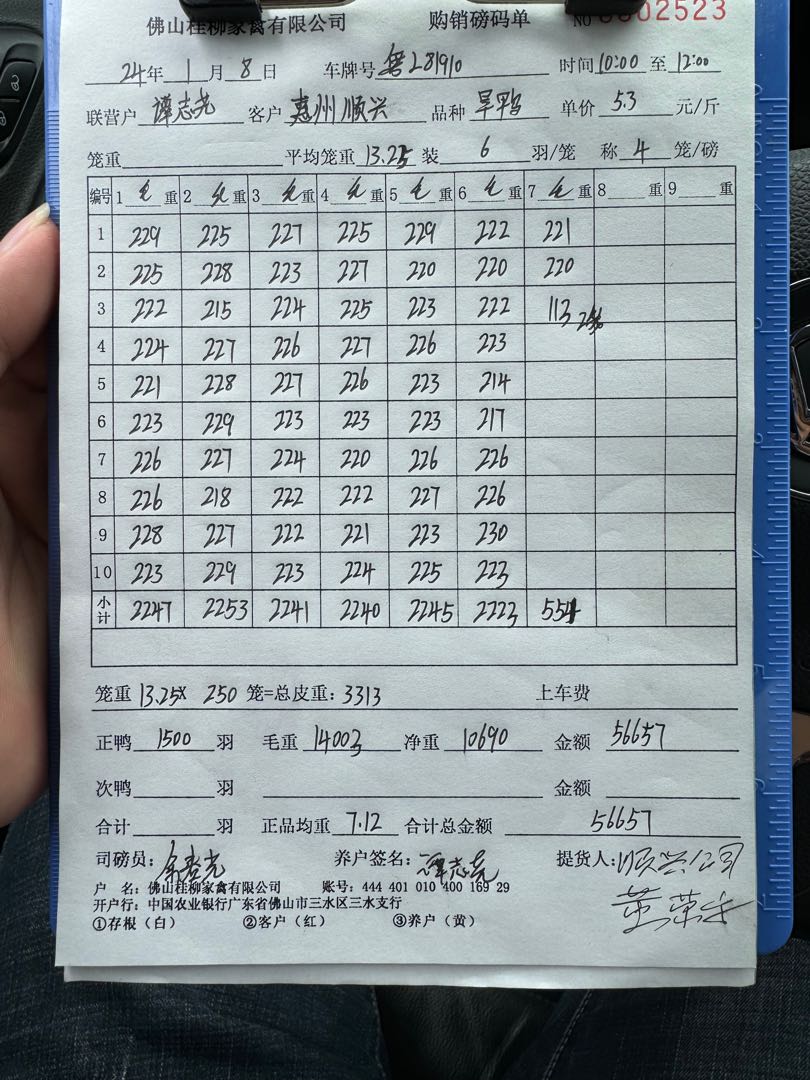 佛山桂柳家禽有限公司 购销磅码单 NO 0002523
24年 1月 8日 车牌号 粤L81910 时间 10:00 至 12:00
联营户 谭志尧 客户 惠州顺兴 品种 旱鸭 单价 5.3 元/斤
笼重 平均笼重 13.25 装 6 羽/笼 称 4 笼/磅
编号 1 毛 重 2 毛 重 3 毛 重 4 毛 重 5 毛 重 6 毛 重 7 毛 重 8 重 9 重
1 229 225 227 225 229 222 221
2 225 228 223 227 220 220 220
3 222 215 224 225 223 222 113
4 224 227 226 227 226 223
5 221 228 227 226 223 214
6 223 229 223 223 223 217
7 226 227 224 220 226 226
8 226 218 222 222 227 226
9 228 227 222 221 223 230
10 223 229 223 224 225 223
小计 2247 2253 2241 2240 2245 2223 554
笼重 13.25X 250 笼=总皮重: 3313 上车费
正鸭 1500 羽 毛重 14003 净重 10690 金额 56657
次鸭 羽 金额
合计 羽 正品均重 7.12 合计总金额 56657
司磅员: 养户签名: 谭志尧 提货人: 顺兴公司
户 名: 佛山桂柳家禽有限公司 账号: 444 401 010 400 169 29
开户行: 中国农业银行广东省佛山市三水区三水支行
①存根(白) ②客户(红) ③养户(黄)